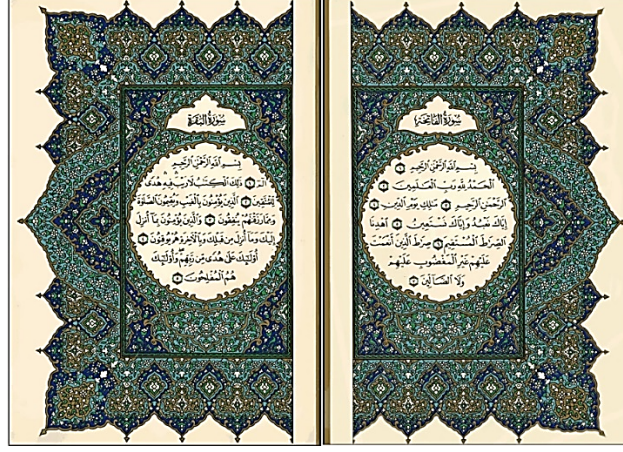 سورة الفاتحة
بِسْمِ اللَّهِ الرَّحْمَٰنِ الرَّحِيمِ ۝١
الْحَمْدُ لِلَّهِ رَبِّ الْعَٰلَمِينَ ۝٢
الرَّحْمَٰنِ الرَّحِيمِ ۝٣ مَٰلِكِ يَوْمِ الدِّينِ ۝٤
إِيَّاكَ نَعْبُدُ وَإِيَّاكَ نَسْتَعِينُ ۝٥ اهْدِنَا
الصِّرَٰطَ الْمُسْتَقِيمَ ۝٦ صِرَٰطَ الَّذِينَ أَنْعَمْتَ
عَلَيْهِمْ غَيْرِ الْمَغْضُوبِ عَلَيْهِمْ
وَلَا الضَّالِّينَ ۝٧
سورة البقرة
بِسْمِ اللَّهِ الرَّحْمَٰنِ الرَّحِيمِ
الٓمٓ ۝١ ذَٰلِكَ الْكِتَٰبُ لَا رَيْبَ فِيهِ هُدًى
لِّلْمُتَّقِينَ ۝٢ الَّذِينَ يُؤْمِنُونَ بِالْغَيْبِ وَيُقِيمُونَ الصَّلَوٰةَ
وَمِمَّا رَزَقْنَٰهُمْ يُنفِقُونَ ۝٣ وَالَّذِينَ يُؤْمِنُونَ بِمَا أُنزِلَ
إِلَيْكَ وَمَا أُنزِلَ مِن قَبْلِكَ وَبِالْآخِرَةِ هُمْ يُوقِنُونَ ۝٤
أُولَٰئِكَ عَلَىٰ هُدًى مِّن رَّبِّهِمْ وَأُولَٰئِكَ
هُمُ الْمُفْلِحُونَ ۝٥